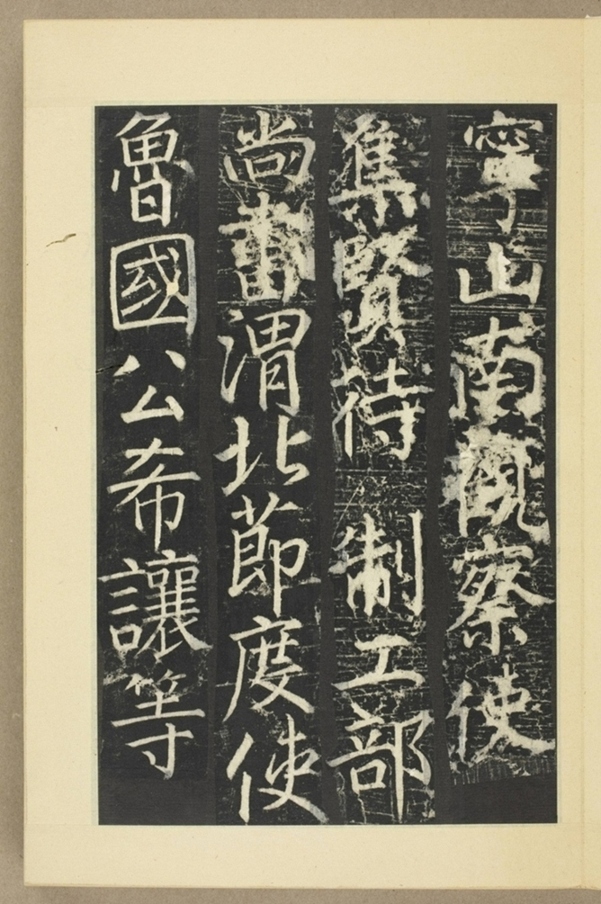 寧山南觀察使
集賢待制工部
尚書渭北節度使
魯國公希讓等